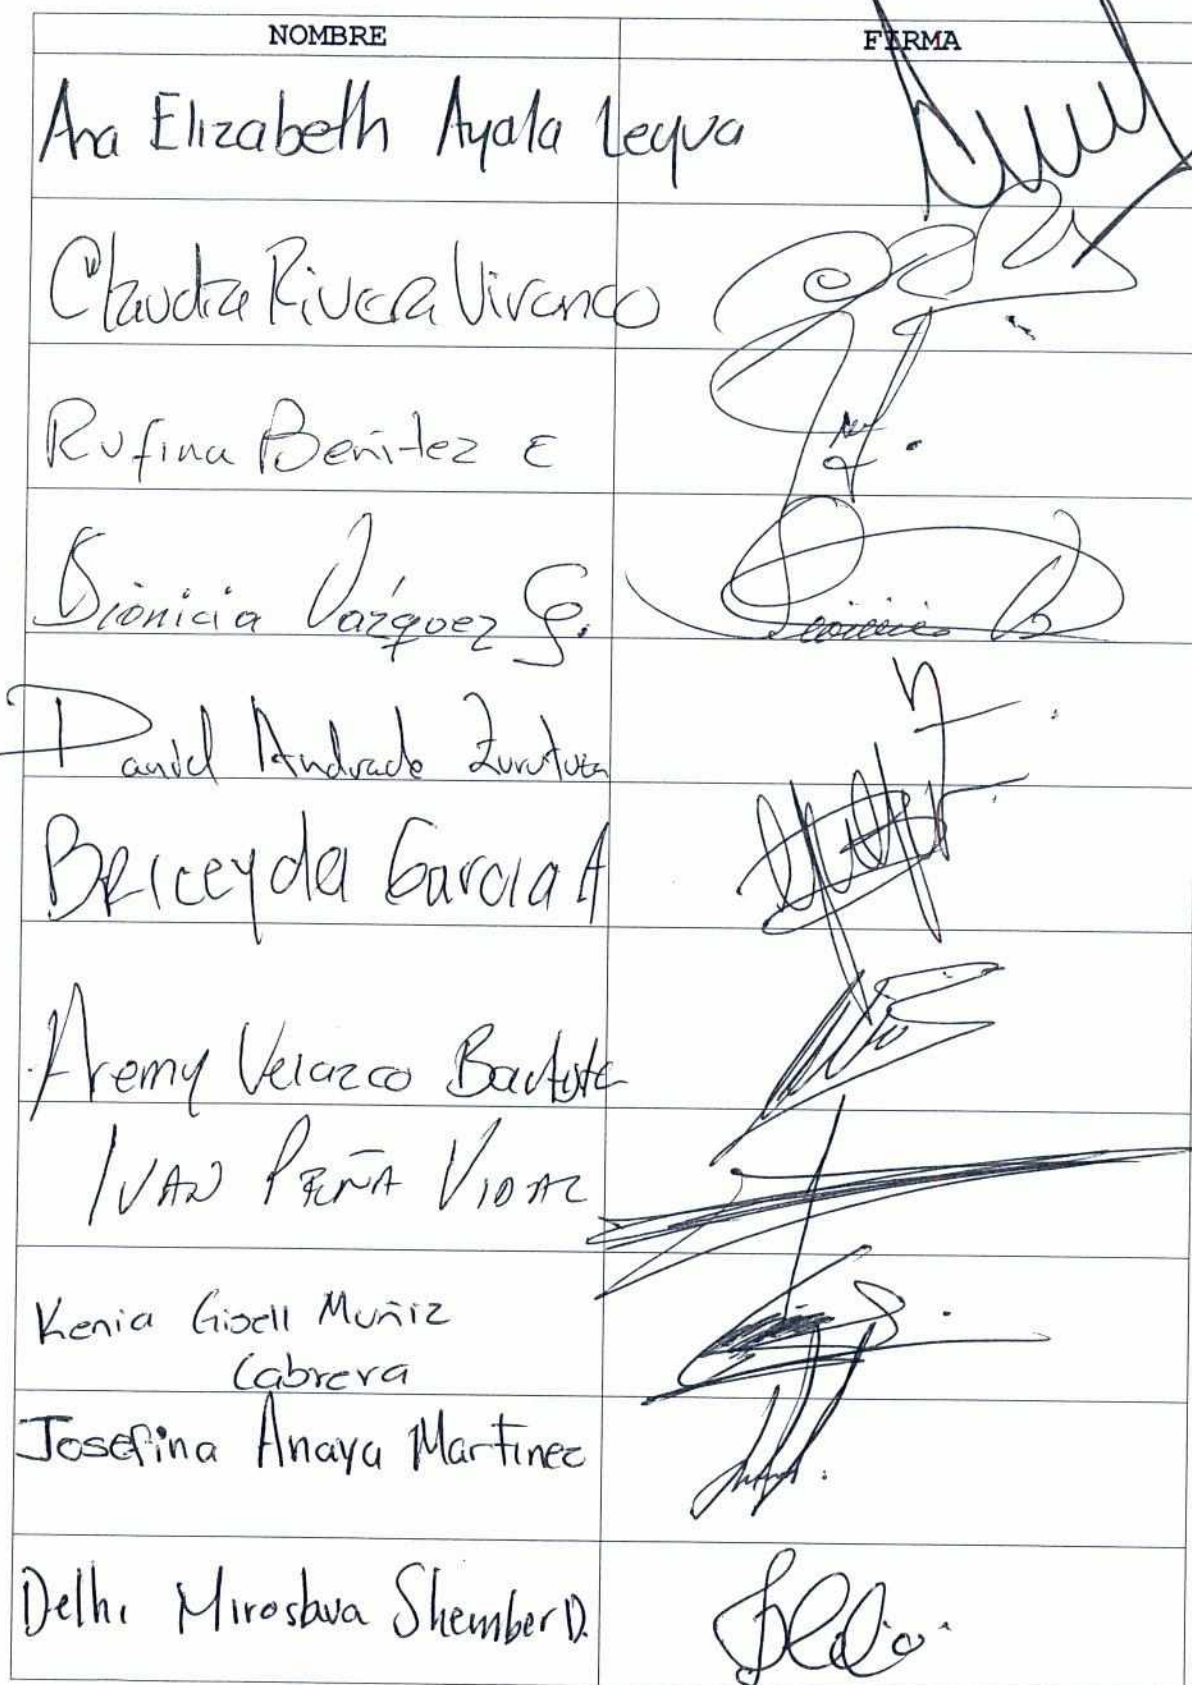 NOMBRE FIRMA
Ana Elizabeth Ayala Leyva
Claudia Rivera Vivanco
Rufina Benítez E
Dionicia Vázquez G.
Daniel Andrade Zurutuza
Briceyda Garcia A
Aremy Velazco Bautista
IVAN PEÑA VIDAL
Kenia Gisell Muñiz
Cabrera
Josefina Anaya Martinez
Delhi Miroslava Shember D.